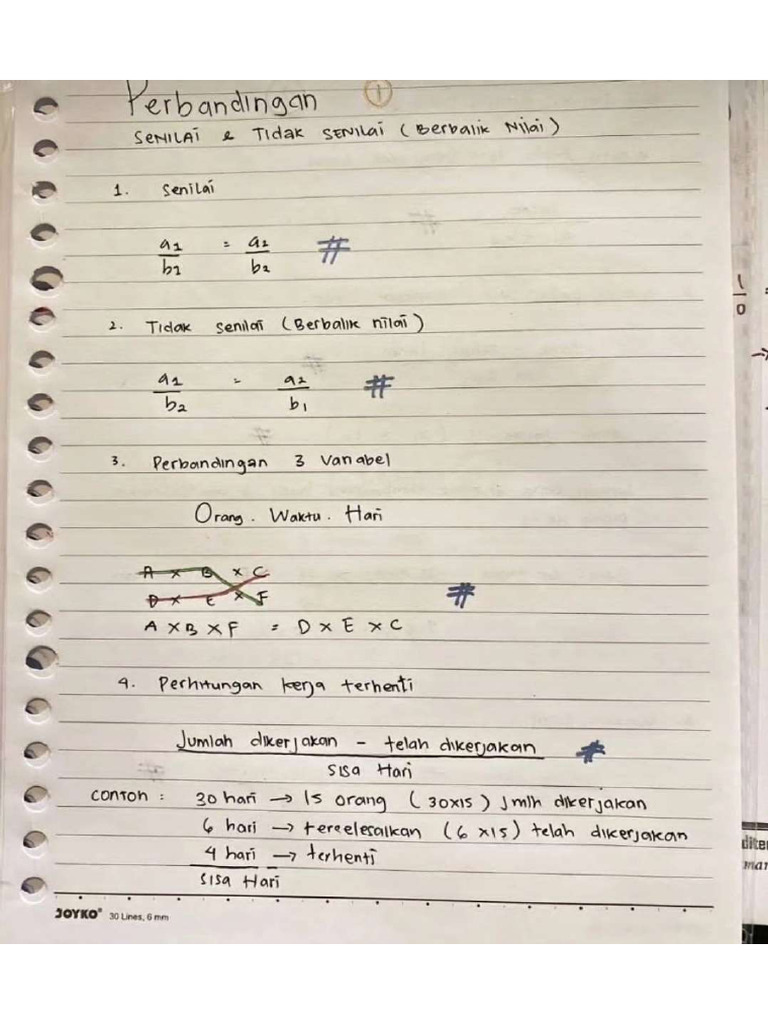 Perbandingan 1
SENILAI & TIdak SENILai (Berbalik Nilai)
1. Senilai
a1 = a2 #
b1 b2
2. Tidak senilai (Berbalik nilai)
a1 = a2 #
b2 b1
3. Perbandingan 3 Variabel
Orang . Waktu . Hari
A x B x C
D x E x F #
A x B x F = D x E x C
4. Perhitungan kerja terhenti
Jumlah dikerjakan - telah dikerjakan #
Sisa Hari
Contoh : 30 hari → 15 orang (30x15) Jmlh dikerjakan
6 hari → terselesaikan (6 x15) telah dikerjakan
4 hari → terhenti
Sisa Hari
JOYKO® 30 Lines, 6 mm
1
0
=
→